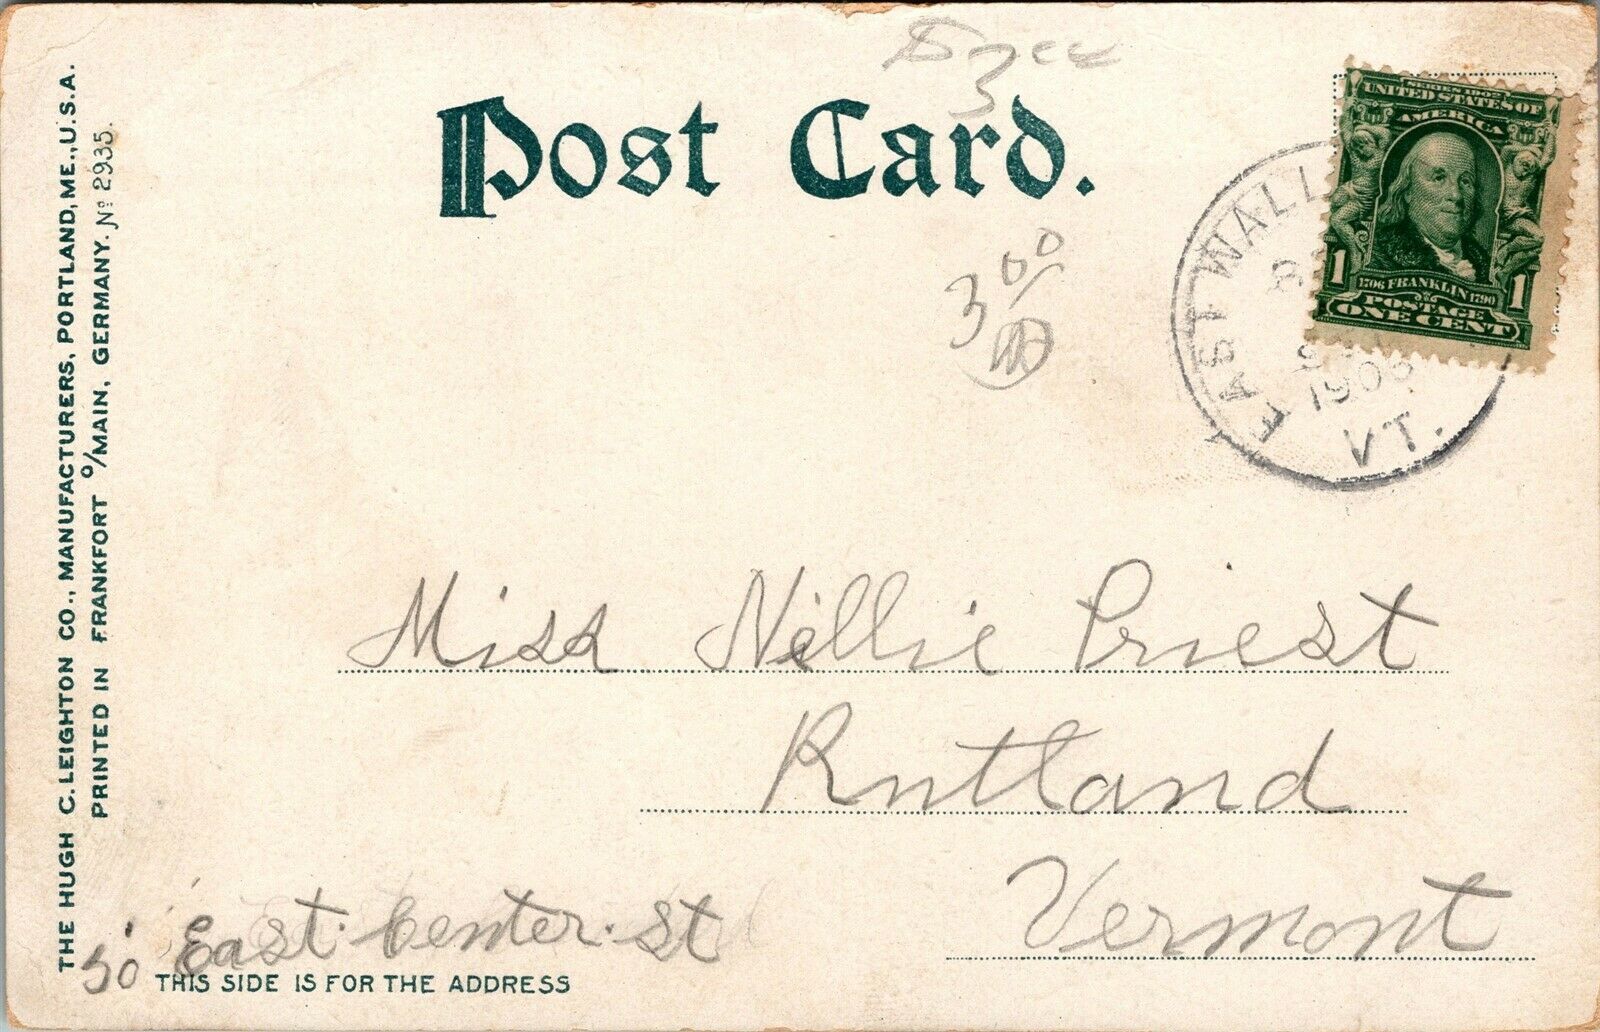 Post Card.
3 00
SERIES 1902
UNITED STATES OF
AMERICA
1 1
1706 FRANKLIN 1790
POSTAGE
ONE CENT
EAST WALL
1906
VT.
Miss Nellie Priest
Rutland
Vermont
50 East Center St
THIS SIDE IS FOR THE ADDRESS
THE HUGH C. LEIGHTON CO., MANUFACTURERS, PORTLAND, ME., U.S.A.
PRINTED IN FRANKFORT o/MAIN, GERMANY. No 2935.